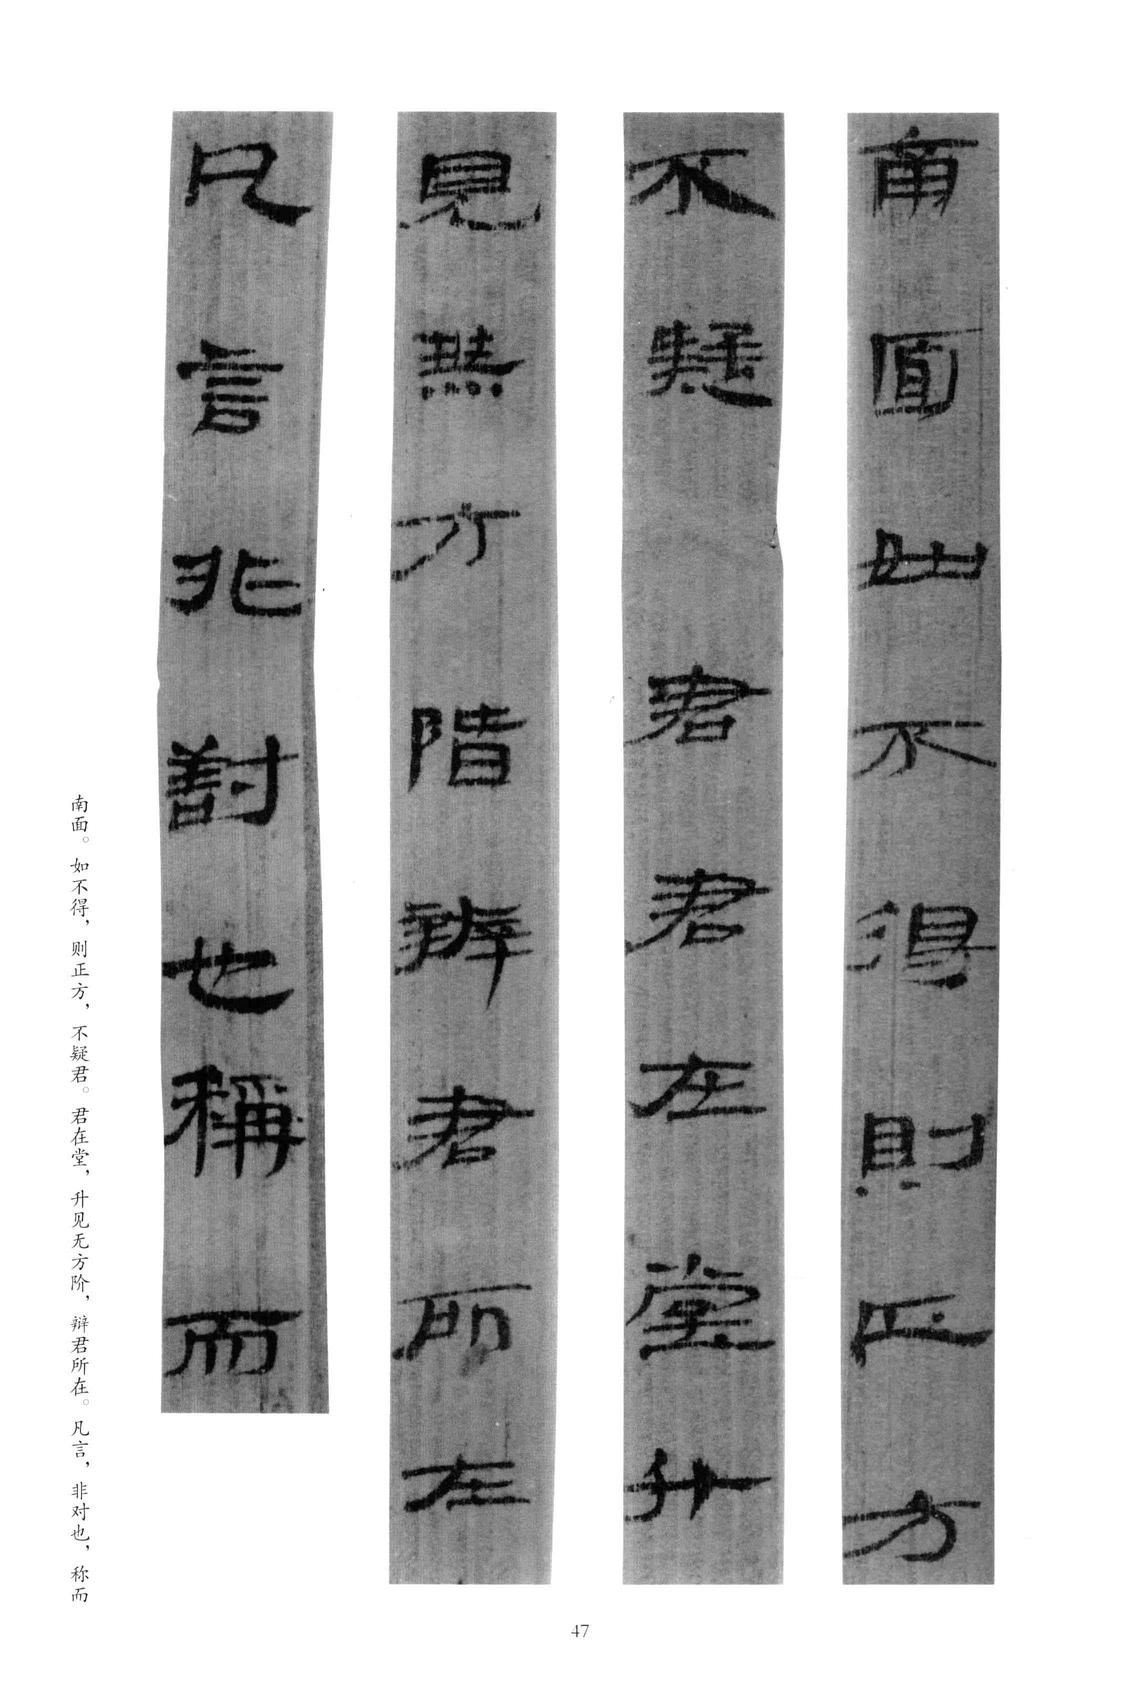 南面如不得則正方
不疑君君在堂升
見無方階辯君所在
凡言非對也稱而
南面。如不得，则正方，不疑君。君在堂，升见无方阶，辩君所在。凡言，非对也，称而
47